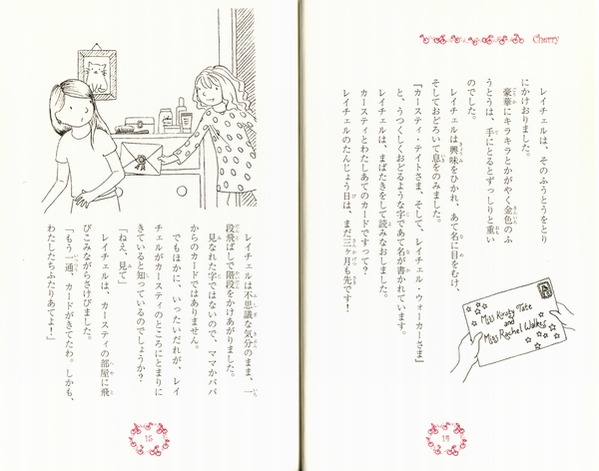 Cherry
レイチェルは、そのふうとうをとり
にかけおりました。
豪華にキラキラとかがやく金色のふ
うとうは、手にとるとずっしりと重い
のでした。
レイチェルは興味をひかれ、あて名に目をむけ、
そしておどろいて息をのみました。
「カースティ・テイトさま、そして、レイチェル・ウォーカーさま」
と、うつくしくおどるような字であて名が書かれています。
レイチェルは、まばたきをして読みなおしました。
カースティとわたしあてのカードですって?
レイチェルのたんじょう日は、まだ三ヶ月も先です!
Miss Kirsty Tate
and
Miss Rachel Walker
14
レイチェルは不思議な気分のまま、一
段飛ばしで階段をかけあがりました。
見なれた字ではないので、ママかパパ
からのカードではありません。
でもほかに、いったいだれが、レイ
チェルがカースティのところにとまりに
きていると知っているのでしょうか?
「ねえ、見て」
レイチェルは、カースティの部屋に飛
びこみながらさけびました。
「もう一通、カードがきてたわ。しかも、
わたしたちふたりあてよ!」
15